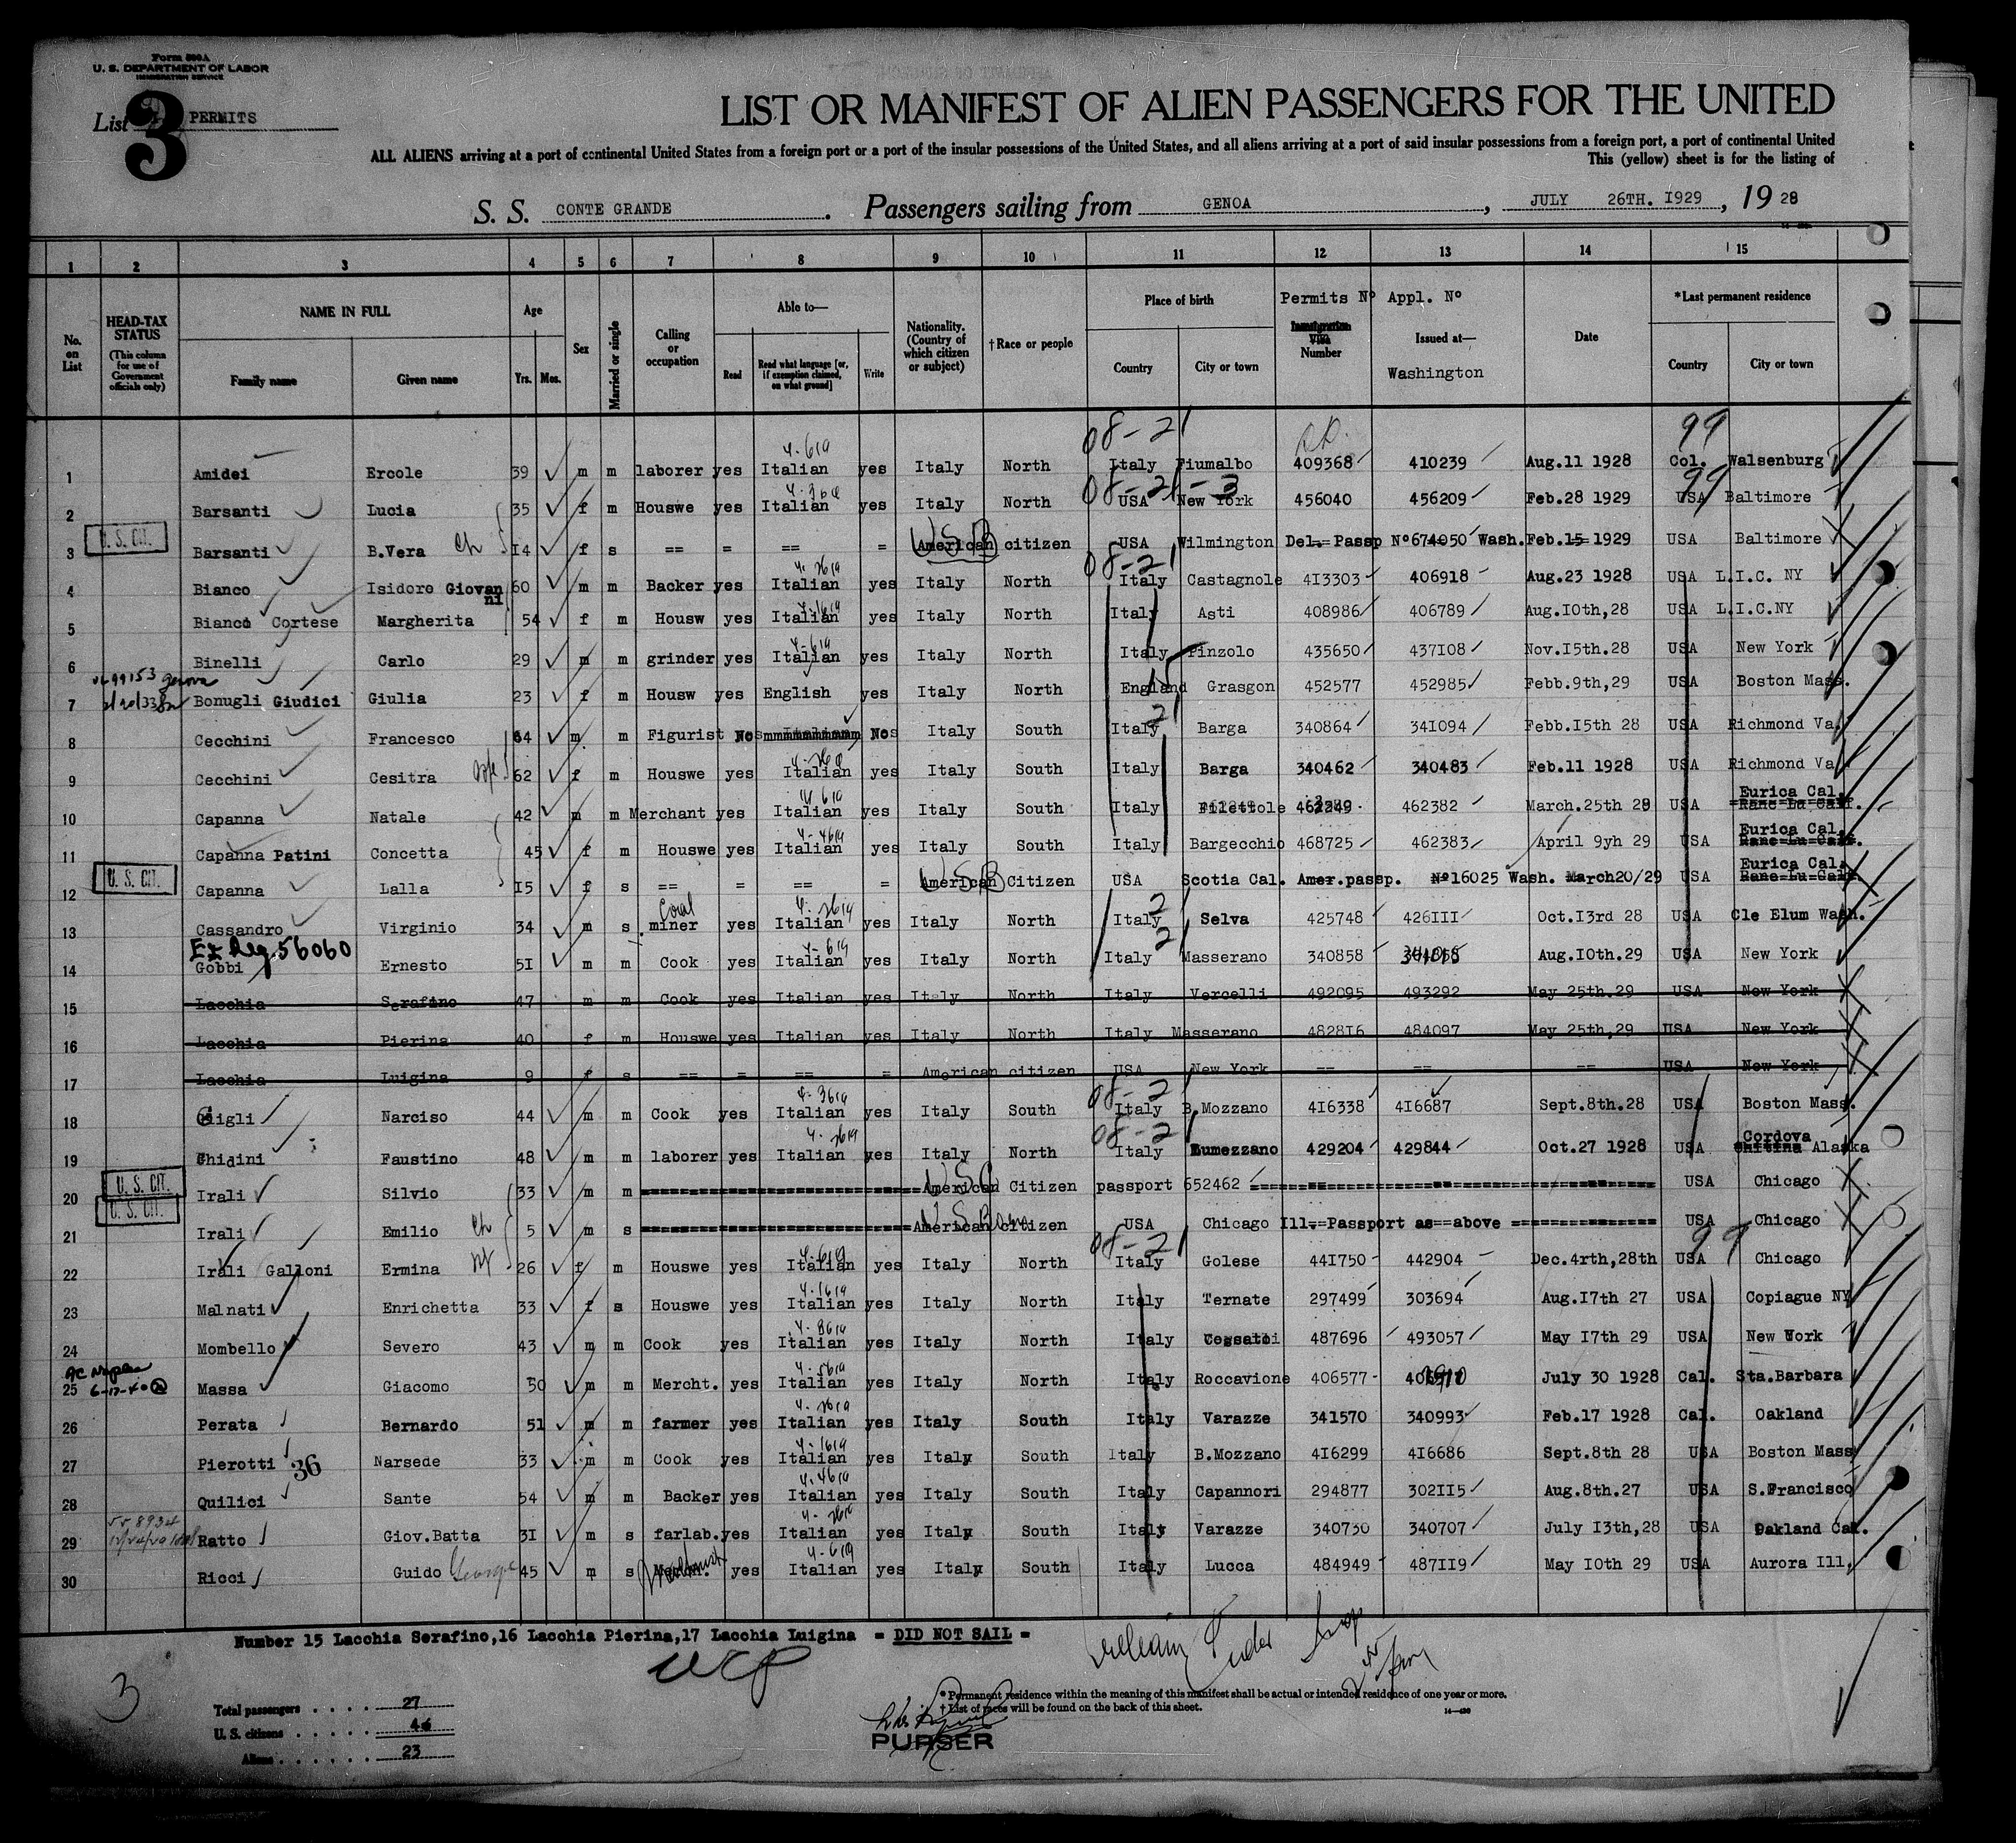 Form 500A
U. S. DEPARTMENT OF LABOR
IMMIGRATION SERVICE
List 3 PERMITS
LIST OR MANIFEST OF ALIEN PASSENGERS FOR THE UNITED
ALL ALIENS arriving at a port of continental United States from a foreign port or a port of the insular possessions of the United States, and all aliens arriving at a port of said insular possessions from a foreign port, a port of continental United
This (yellow) sheet is for the listing of
S. S. CONTE GRANDE. Passengers sailing from GENOA, JULY 26TH. 1929, 19 28
1 2 3 4 5 6 7 8 9 10 11 12 13 14 15
No. on List
HEAD-TAX STATUS (This column for use of Government officials only)
NAME IN FULL Family name Given name
Age Yrs. Mos.
Sex
Married or single
Calling or occupation
Able to— Read Read what language [or, if exemption claimed, on what ground] Write
Nationality. (Country of which citizen or subject)
†Race or people
Place of birth Country City or town
Permits Nº Immigration Visa Number
Appl. Nº Issued at— Washington
Date
*Last permanent residence Country City or town
08-21 99
1 Amidei Ercole 39 m m laborer yes Italian yes Italy North Italy Fiumalbo 409368 410239 Aug.11 1928 Col. Walsenburg
2 Barsanti Lucia 35 f m Houswe yes Italian yes Italy North USA New York 456040 456209 Feb.28 1929 USA Baltimore
U. S. CIT.
3 Barsanti B.Vera ch 14 f s == = == = American citizen USA Wilmington Del. Passp Nº674050 Wash. Feb.15 1929 USA Baltimore
4 Bianco Isidoro Giovanni 60 m m Backer yes Italian yes Italy North Italy Castagnole 413303 406918 Aug.23 1928 USA L.I.C. NY
5 Bianco Cortese Margherita 54 f m Housw yes Italian yes Italy North Italy Asti 408986 406789 Aug.10th,28 USA L.I.C.NY
6 Binelli Carlo 29 m m grinder yes Italian yes Italy North Italy Pinzolo 435650 437108 Nov.15th.28 USA New York
7 Bonugli Giudici Giulia 23 f m Housw yes English yes Italy North England Grasgon 452577 452985 Febb.9th,29 USA Boston Mass.
8 Cecchini Francesco 64 m m Figurist No Italian No Italy South Italy Barga 340864 341094 Febb.15th 28 USA Richmond Va.
9 Cecchini Cesitra wfe 62 f m Houswe yes Italian yes Italy South Italy Barga 340462 340483 Feb.11 1928 USA Richmond Va.
10 Capanna Natale 42 m m Merchant yes Italian yes Italy South Italy Filettole 462382 March.25th 28 USA Eurica Cal.
11 Capanna Patini Concetta 45 f m Houswe yes Italian yes Italy South Italy Bargecchio 468725 462383 April 9yh 29 USA Eurica Cal.
U. S. CIT.
12 Capanna Lalla 15 f s == = == = American Citizen USA Scotia Cal. Amer.passp. Nº16025 Wash. March20/29 USA Eurica Cal.
13 Cassandro Virginio 34 m s Coal miner yes Italian yes Italy North Italy Selva 425748 426111 Oct.13rd 28 USA Cle Elum Wash.
Ex Reg. 56060
14 Gobbi Ernesto 51 m m Cook yes Italian yes Italy North Italy Masserano 340858 Aug.10th.29 USA New York
15 Lacchia Serafino 47 m m Cook yes Italian yes Italy North Italy Vercelli 492095 493292 May 25th.29 USA New York
16 Lacchia Pierina 40 f m Houswe yes Italian yes Italy North Italy Masserano 482816 484097 May 25th,29 USA New York
17 Lacchia Luigina 9 f s == = == = American citizen USA New York == == == USA New York
18 Gigli Narciso 44 m m Cook yes Italian yes Italy South Italy B.Mozzano 416338 416687 Sept.8th.28 USA Boston Mass.
19 Ghidini Faustino 48 m m laborer yes Italian yes Italy North Italy Lumezzano 429204 429844 Oct.27 1928 USA Cordova Alaska
U. S. CIT.
20 Irali Silvio 33 m m American Citizen passport 652462 USA Chicago
U. S. CIT.
21 Irali Emilio ch 5 m s American citizen USA Chicago Ill. Passport as above USA Chicago
22 Irali Galloni Ermina wf 26 f m Houswe yes Italian yes Italy North Italy Golese 441750 442904 Dec.4rth,28th USA Chicago
23 Malnati Enrichetta 33 f s Houswe yes Italian yes Italy North Italy Ternate 297499 303694 Aug.17th 27 USA Copiague NY
24 Mombello Severo 43 m m Cook yes Italian yes Italy North Italy Cossato 487696 493057 May 17th 29 USA New York
25 Massa Giacomo 30 m m Mercht. yes Italian yes Italy North Italy Roccavione 406577 July 30 1928 Cal. Sta.Barbara
26 Perata Bernardo 51 m m farmer yes Italian yes Italy South Italy Varazze 341570 340993 Feb.17 1928 Cal. Oakland
27 Pierotti 36 Narsede 33 m m Cook yes Italian yes Italy South Italy B.Mozzano 416299 416686 Sept.8th 28 USA Boston Mass
28 Quilici Sante 54 m m Backer yes Italian yes Italy South Italy Capannori 294877 302115 Aug.8th.27 USA S.Francisco
29 Ratto Giov.Batta 31 m s farlab. yes Italian yes Italy South Italy Varazze 340730 340707 July 13th,28 USA Oakland Cal.
30 Ricci Guido George 45 m s yes Italian yes Italy South Italy Lucca 484949 487119 May 10th 29 USA Aurora Ill.
Number 15 Lacchia Serafino,16 Lacchia Pierina,17 Lacchia Luigina = DID NOT SAIL =
3
Total passengers . . . . 27
U. S. citizens . . . . .
Aliens . . . . . . 23
* Permanent residence within the meaning of this manifest shall be actual or intended residence of one year or more.
† List of races will be found on the back of this sheet.
PURSER